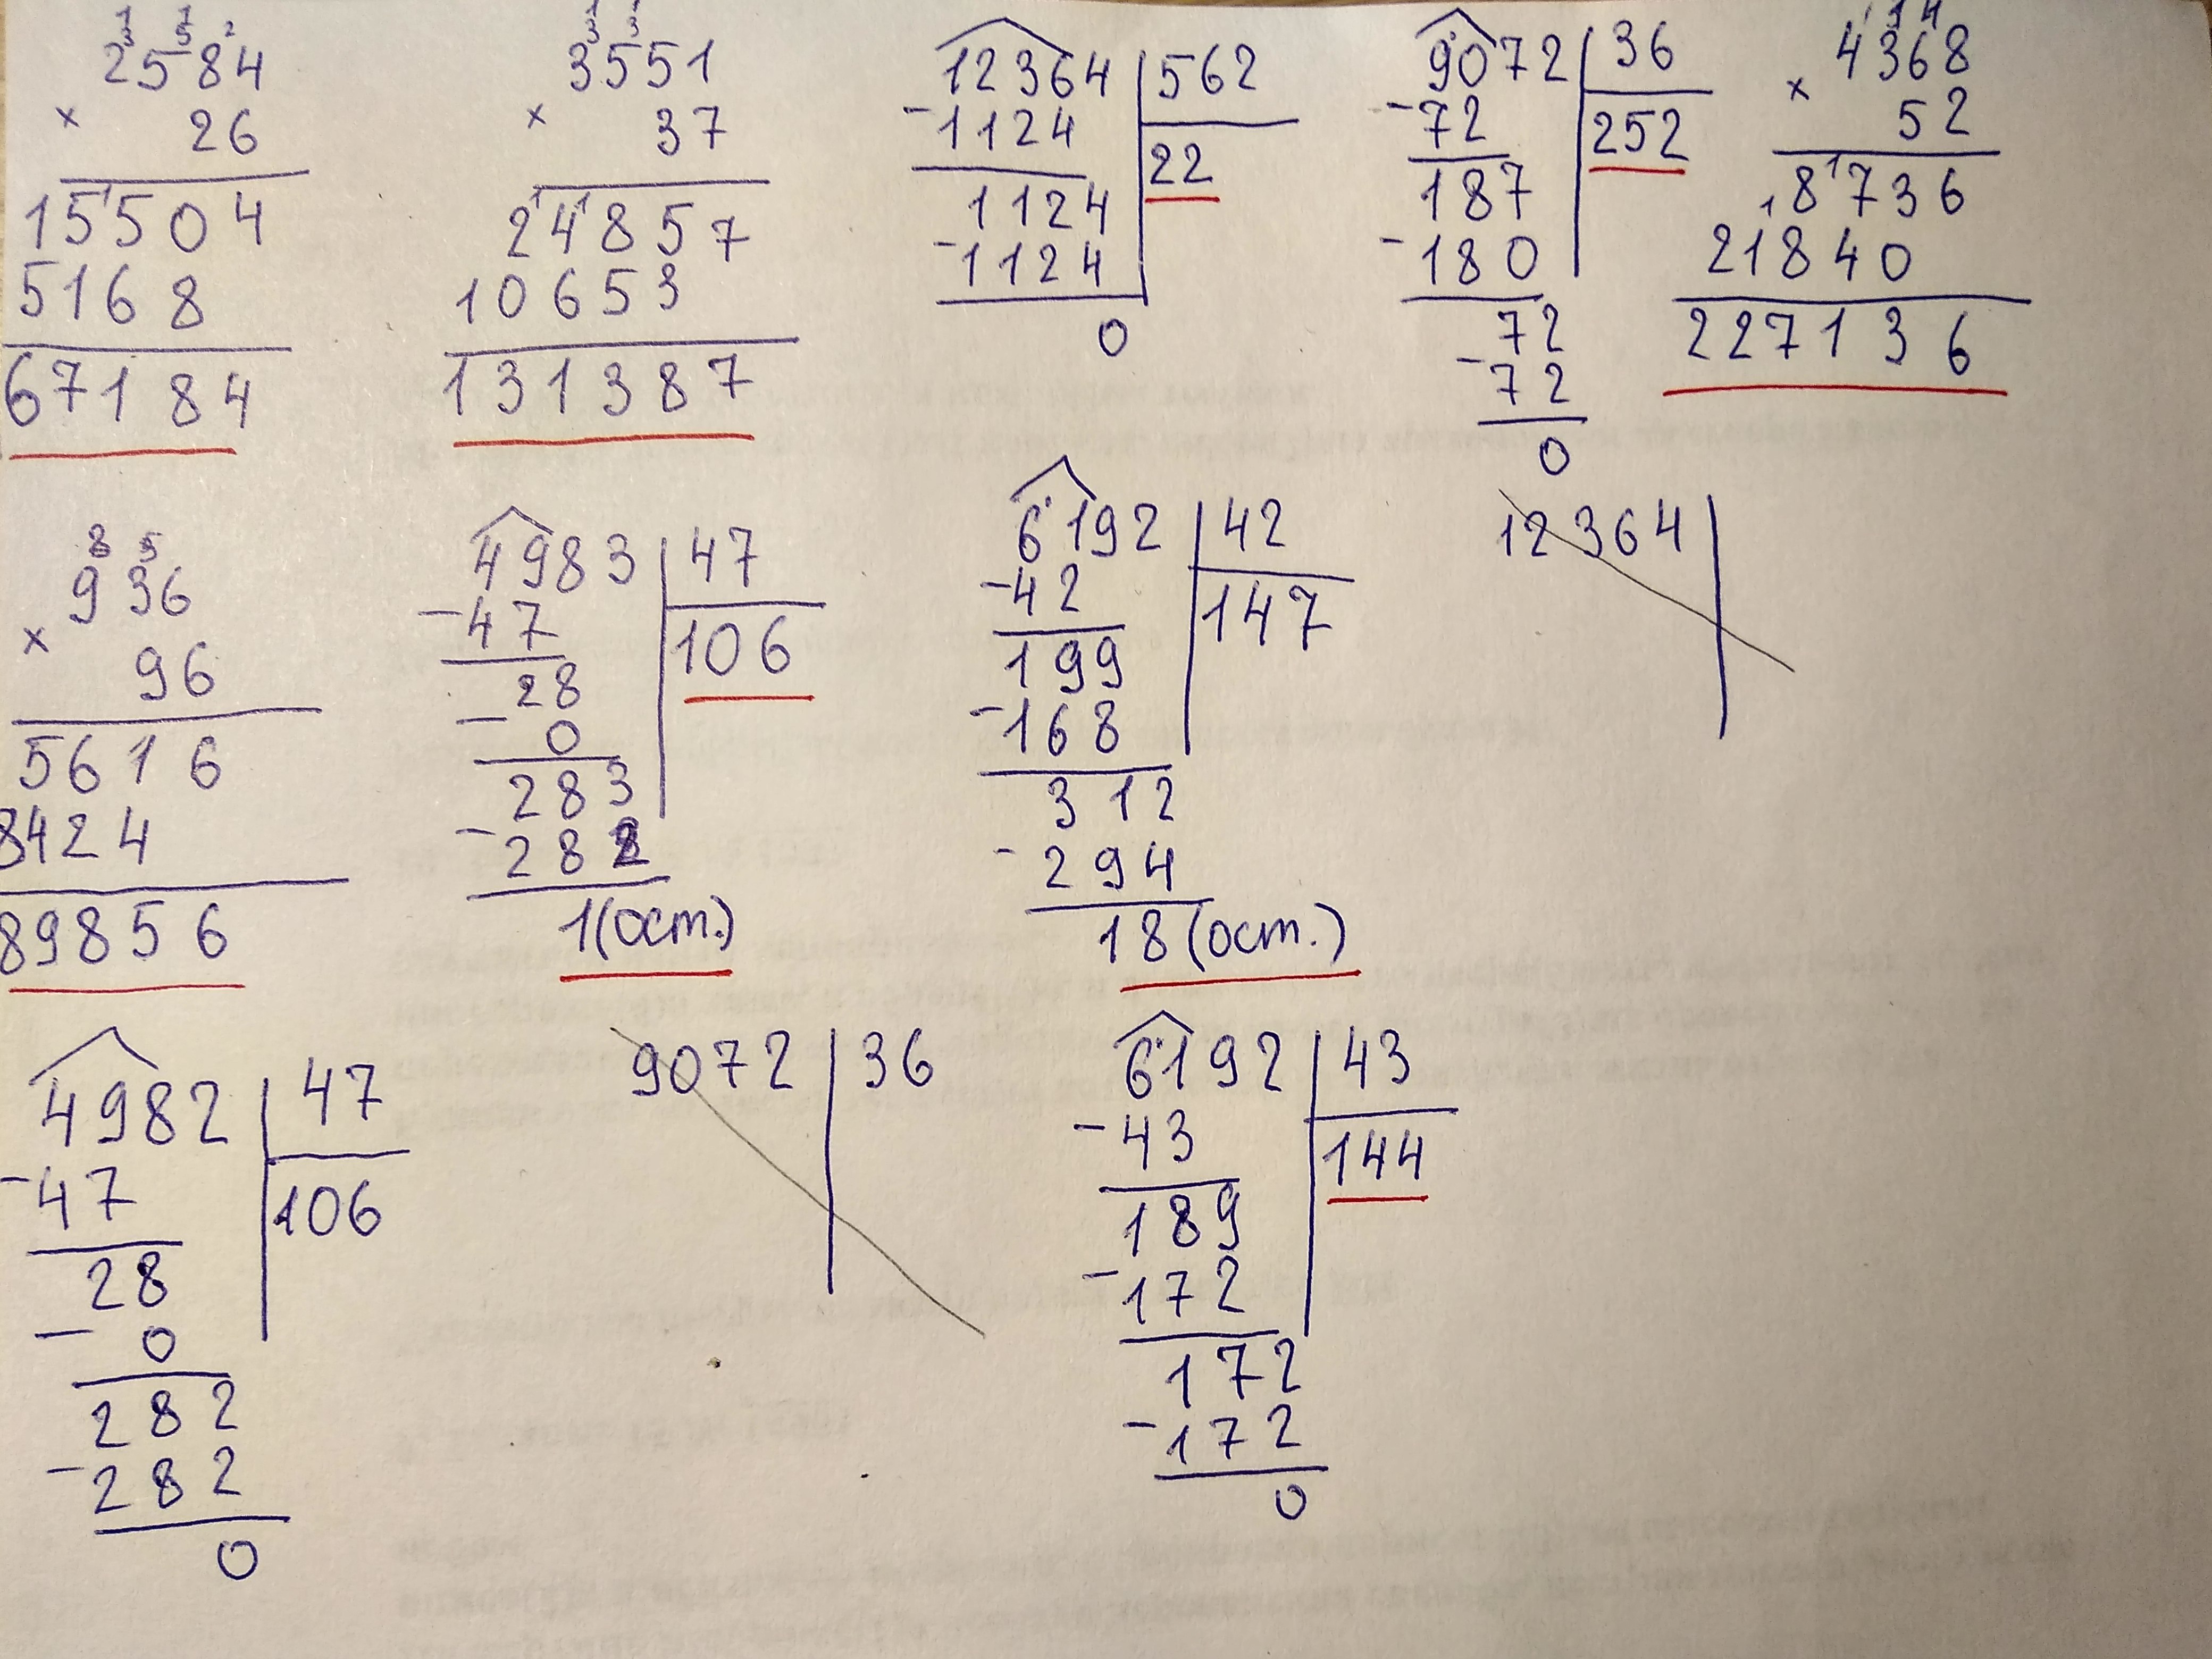 2584
× 26
15504
5168
67184
3551
× 37
24857
10653
131387
12364 | 562
-1124 | 22
1124
-1124
0
9072 | 36
-72 | 252
187
-180
72
-72
0
4368
× 52
8736
21840
227136
936
× 96
5616
8424
89856
4983 | 47
-47 | 106
28
- 0
283
-282
1(ост.)
6192 | 42
-42 | 147
199
-168
312
-294
18(ост.)
12364
4982 | 47
-47 | 106
28
- 0
282
-282
0
9072 | 36
6192 | 43
-43 | 144
189
-172
172
-172
0